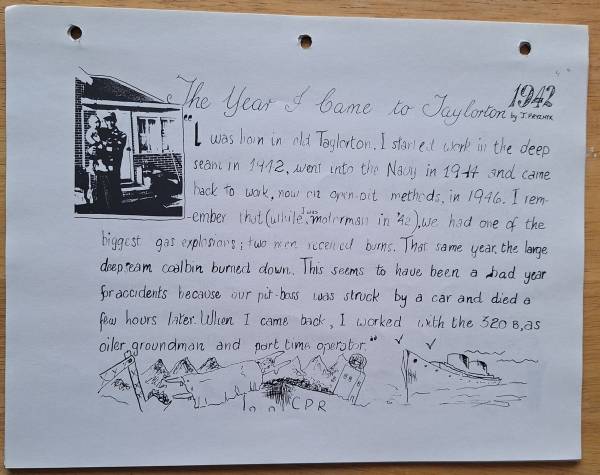 The Year I Came to Taylorton 1942
by J.
"I was born in old Taylorton. I started work in the deep
seam in 1942, went into the Navy in 1944 and came
back to work, now on open-pit methods, in 1946. I rem-
ember that (while I was motorman in '42), we had one of the
biggest gas explosions; two men received burns. That same year, the large
deepseam coalbin burned down. This seems to have been a bad year
for accidents because our pit-boss was struck by a car and died a
few hours later. When I came back, I worked with the 320 B, as
oiler, groundman and part time operator."
CPR